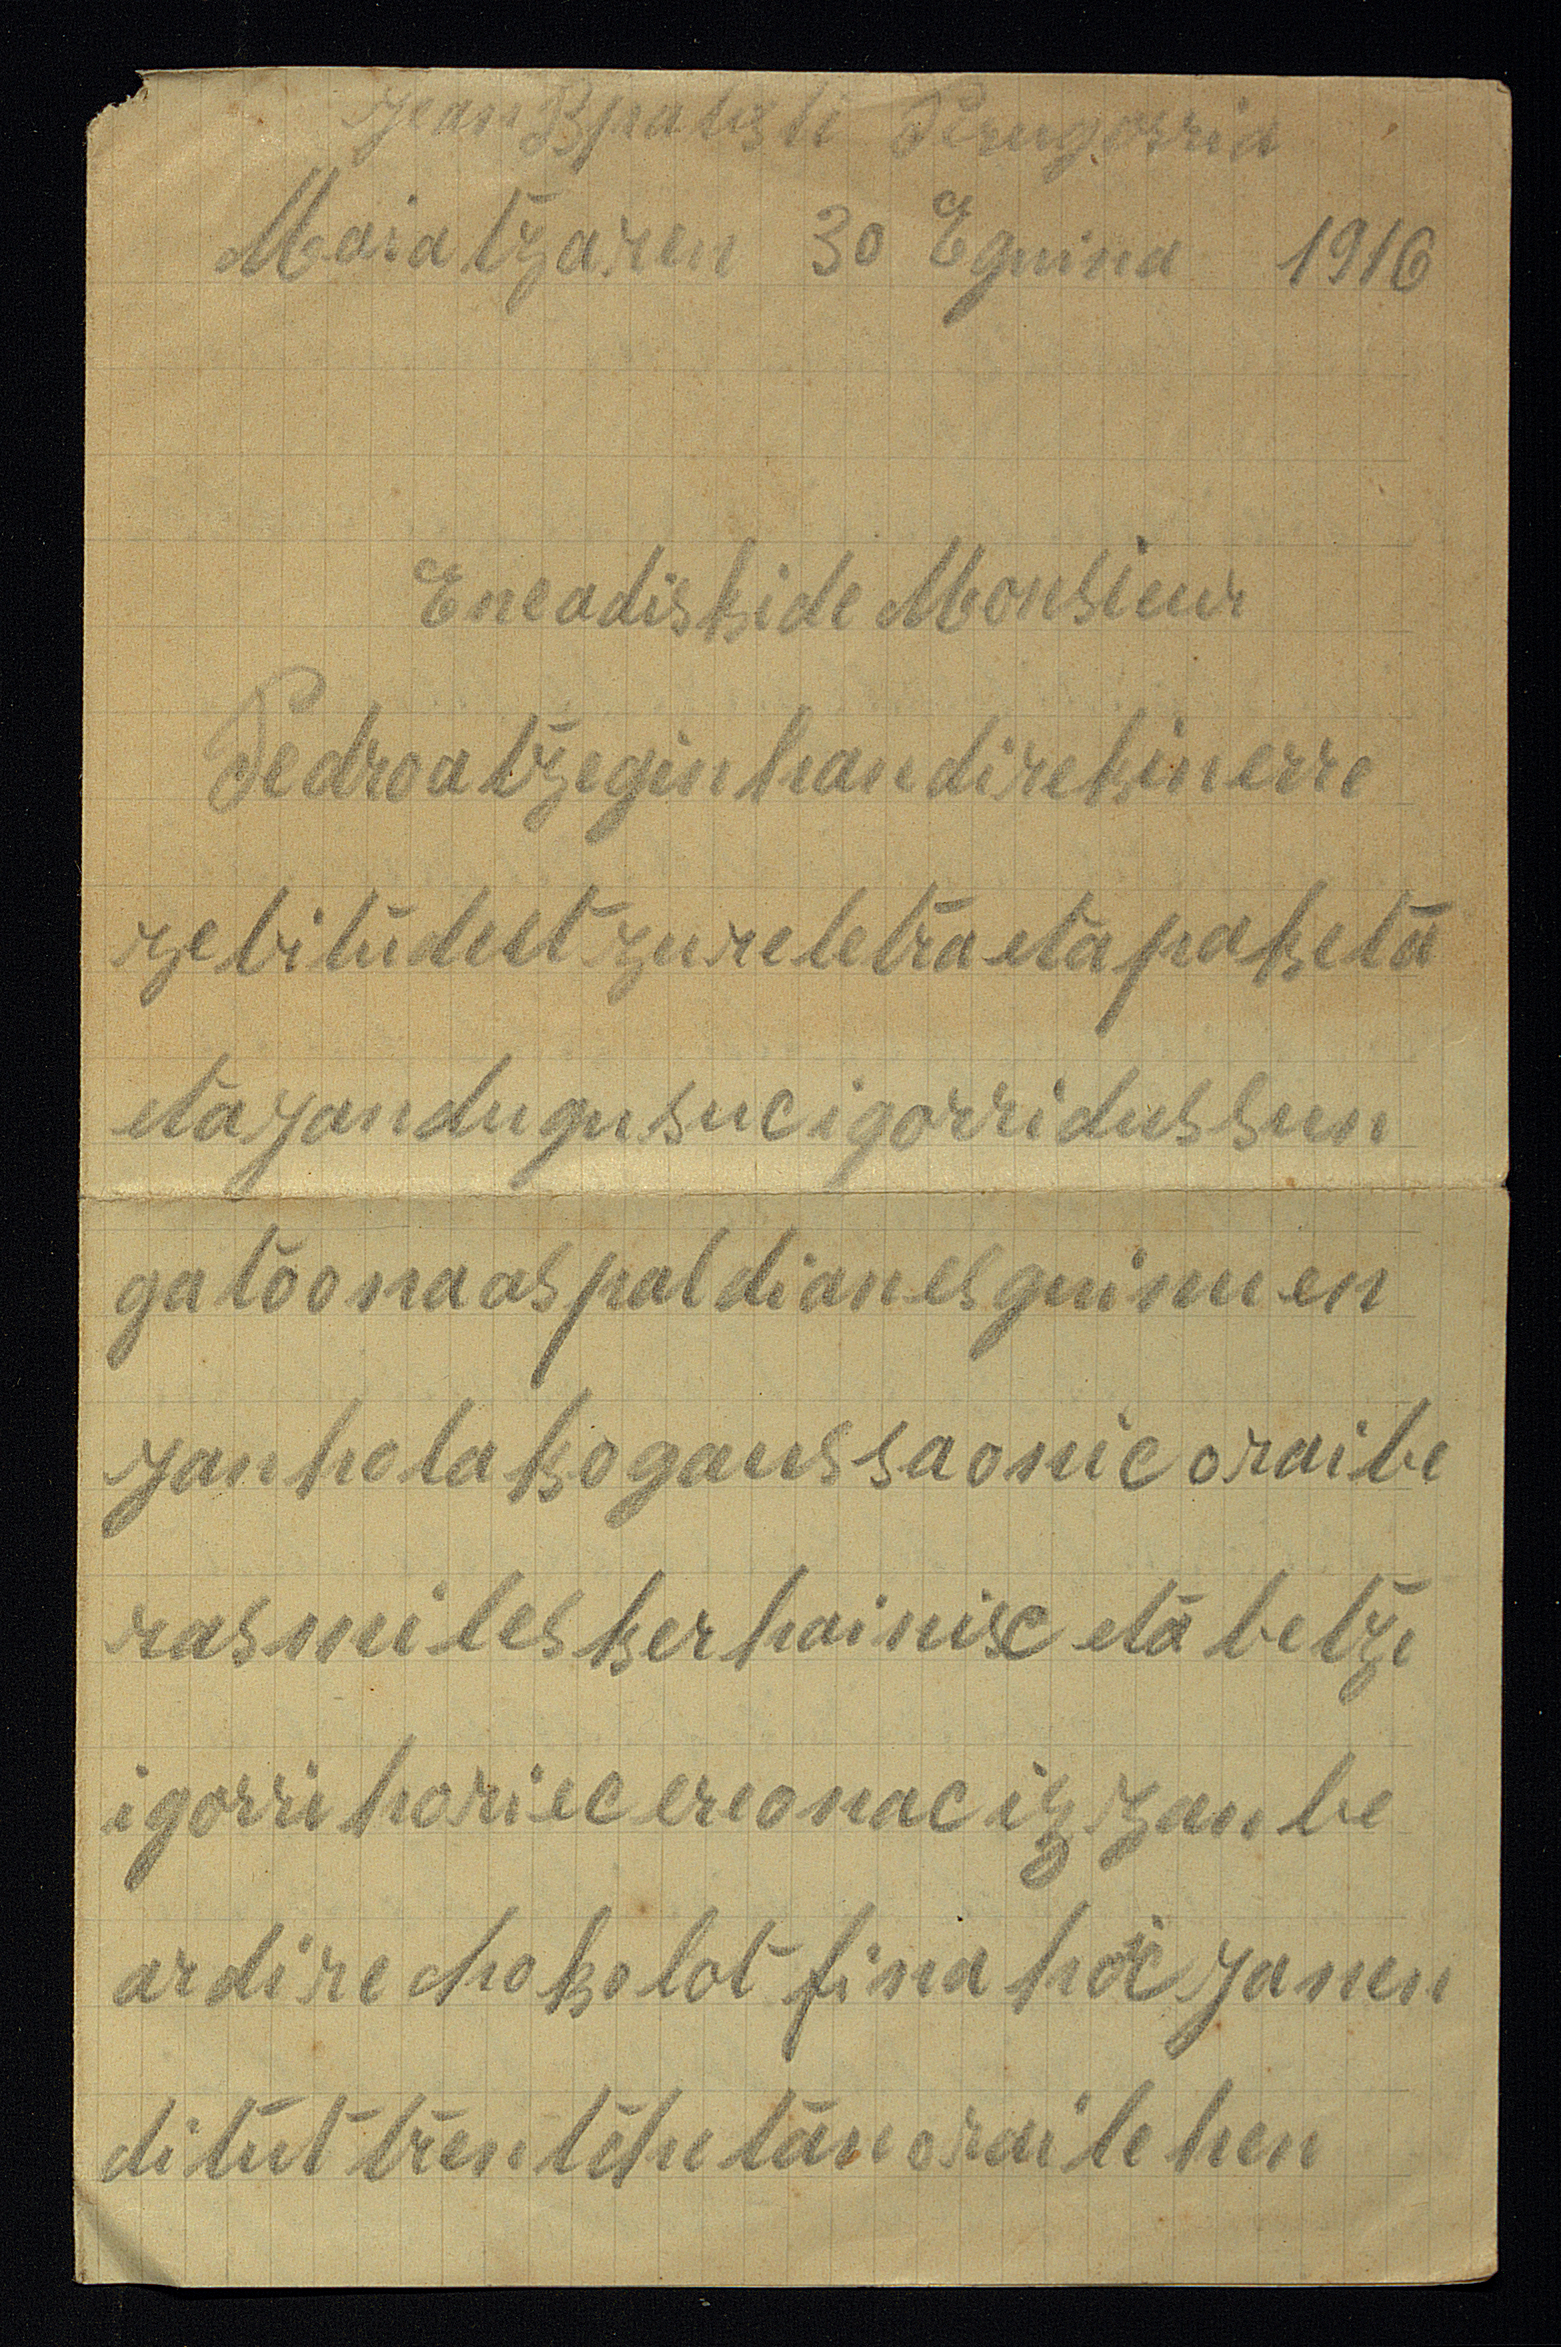 Jean Bpatisti Perugorria
Maiatzaren 30 Eguina 1916
Ene adiskide Monsieur
Pedro atzegin handirekin erre
zebitudut zure letra eta paketa
eta yandugu suc igorri dussun
gatoona aspaldian esguinuen
yan holako gaussa onic orai be
ras mil esker hainisc eta betze
igorri horiec ere onac izzan be
ardire chokolot fina hoc yanen
ditut trentchutan orai lehen